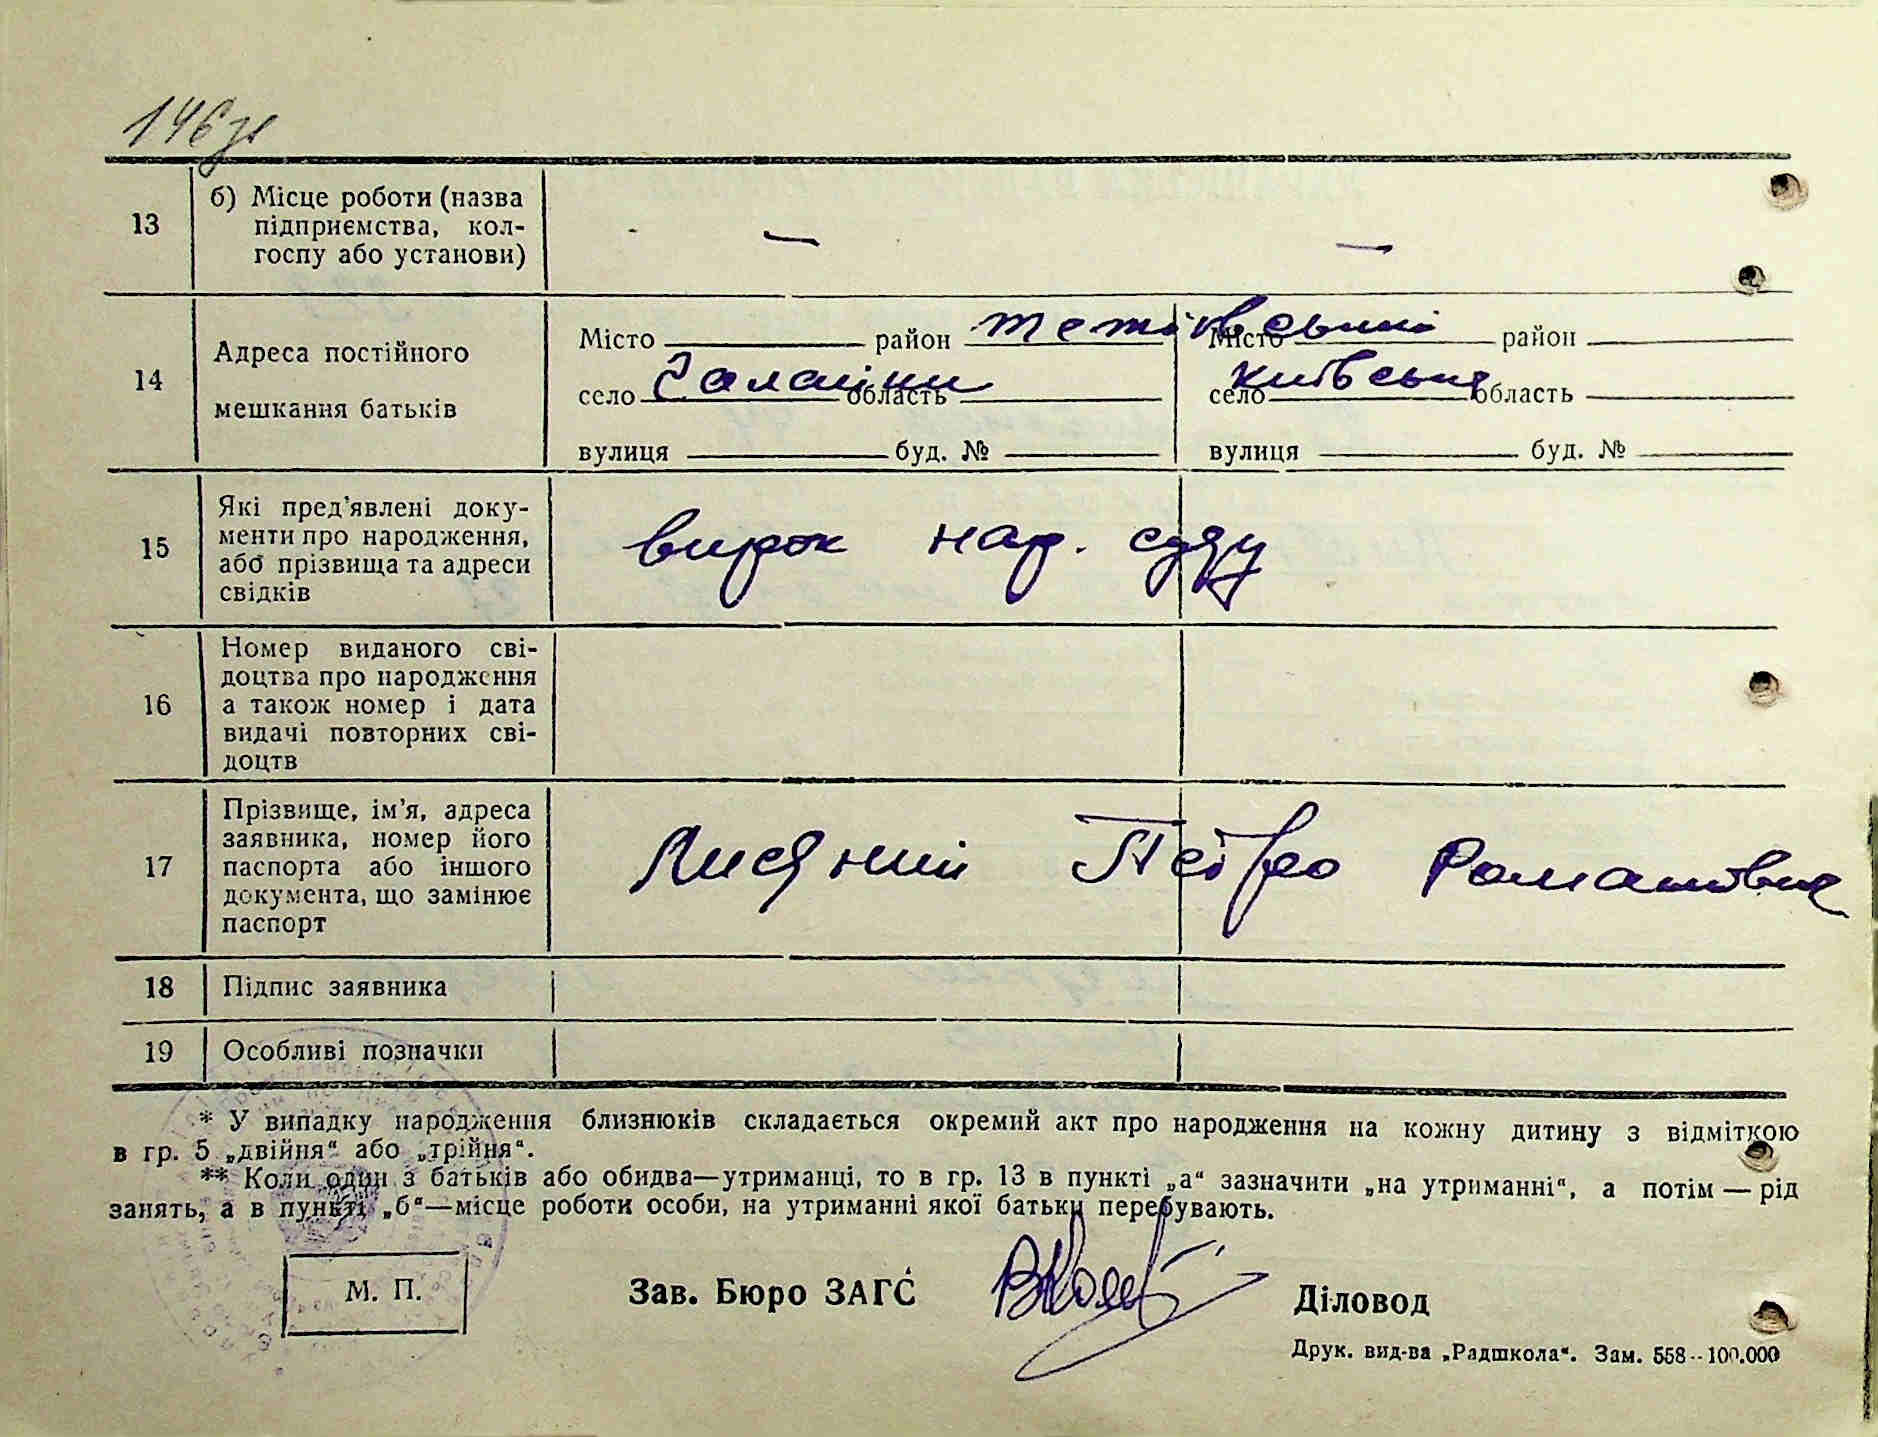 146зв
13
б) Місце роботи (назва
підприємства, кол-
госпу або установи)
— —
14
Адреса постійного
мешкання батьків
Місто район Тетіївський Місто район
село Галайки область село Київська область
вулиця буд. № вулиця буд. №
15
Які пред'явлені доку-
менти про народження,
або прізвища та адреси
свідків
вирок нар. суду
16
Номер виданого сві-
доцтва про народження
а також номер і дата
видачі повторних сві-
доцтв
17
Прізвище, ім'я, адреса
заявника, номер його
паспорта або іншого
документа, що замінює
паспорт
Петро Романович
18 Підпис заявника
19 Особливі позначки
* У випадку народження близнюків складається окремий акт про народження на кожну дитину з відміткою
в гр. 5 „двійня“ або „трійня“.
** Коли один з батьків або обидва—утриманці, то в гр. 13 в пункті „а“ зазначити „на утриманні“, а потім — рід
занять, а в пункті „б“—місце роботи особи, на утриманні якої батьки перебувають.
М. П.
Зав. Бюро ЗАГС
Діловод
Друк. вид-ва „Радшкола“. Зам. 558--100.000